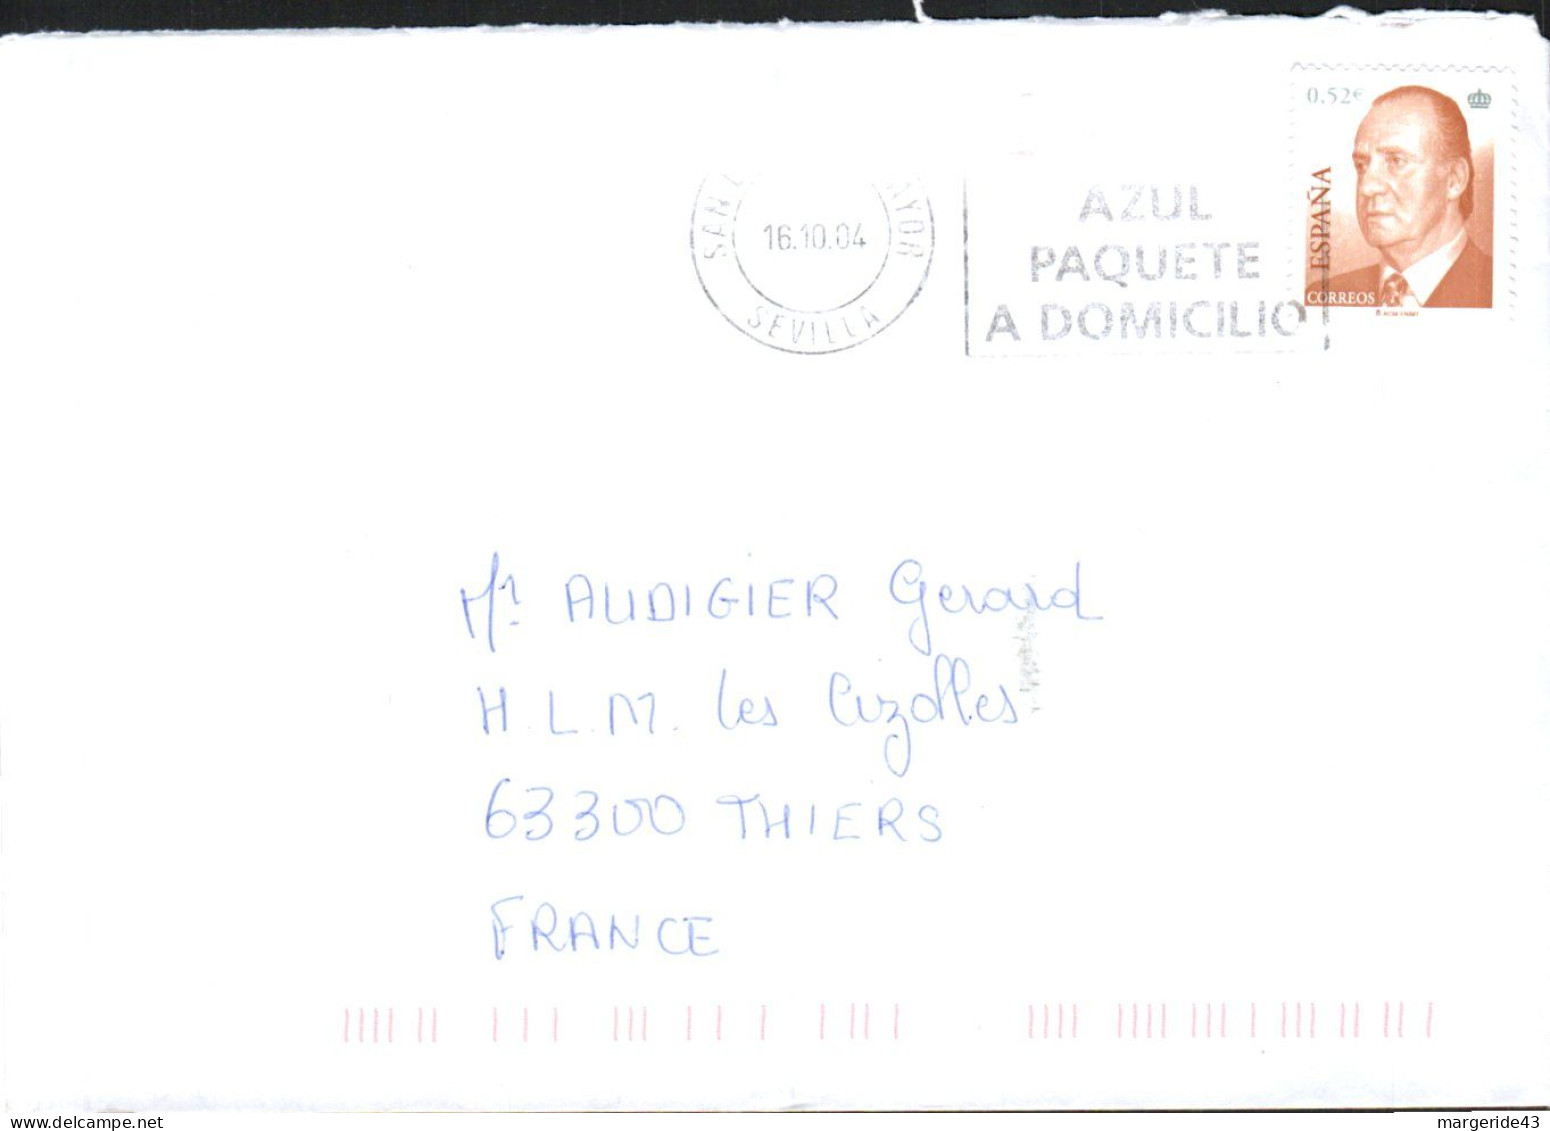 0.52€
ESPAÑA
CORREOS
16.10.04
SEVILLA
AZUL
PAQUETE
A DOMICILIO
Mr AUDIGIER Gerard
H.L.M. les Cizolles
63300 THIERS
FRANCE
delcampe.net
margeride43